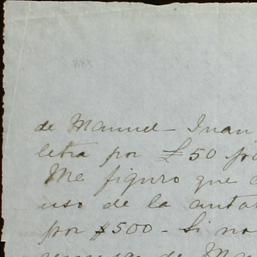 de Manuel - Juan
letra por £50 
Me figuro que
uso de la
por $500 - Si no
de